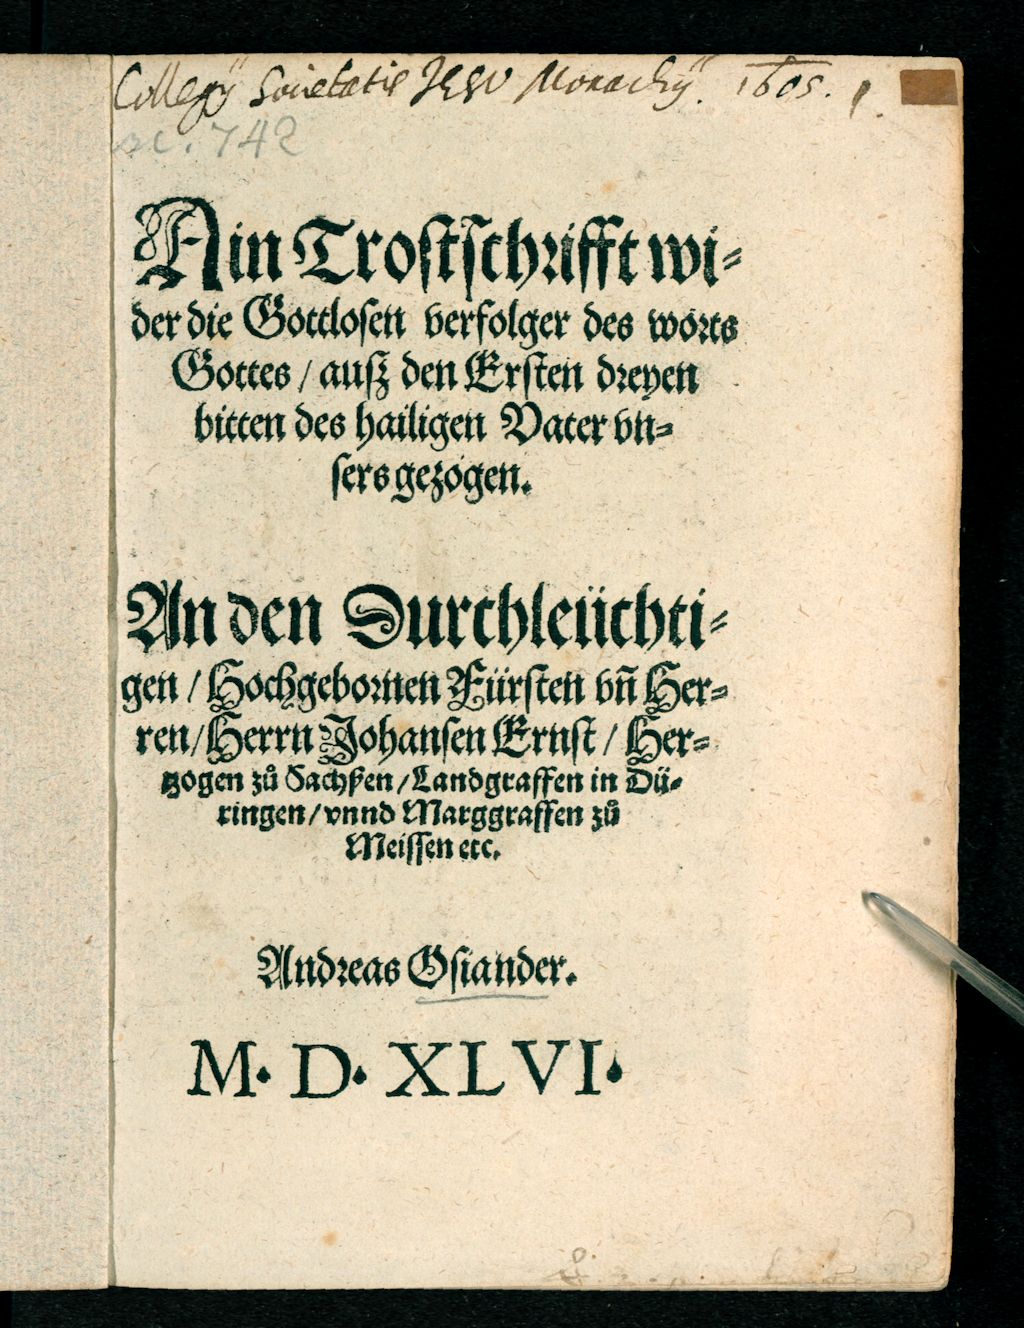 Collegij Societatis IESV Monachij. 1605.
742
Ain Trostschrifft wi⸗
der die Gottlosen verfolger des worts
Gottes / ausz den Ersten dreyen
bitten des hailigen Vater vn⸗
sers gezogen.
An den Durchleüchti⸗
gen / Hochgebornen Fürsten vñ Her⸗
ren / Herrn Johansen Ernst / Her⸗
tzogen zů Sachßen / Landgraffen in Dü⸗
ringen / vnnd Marggraffen zů
Meissen etc.
Andreas Osiander.
M. D. XLVI.